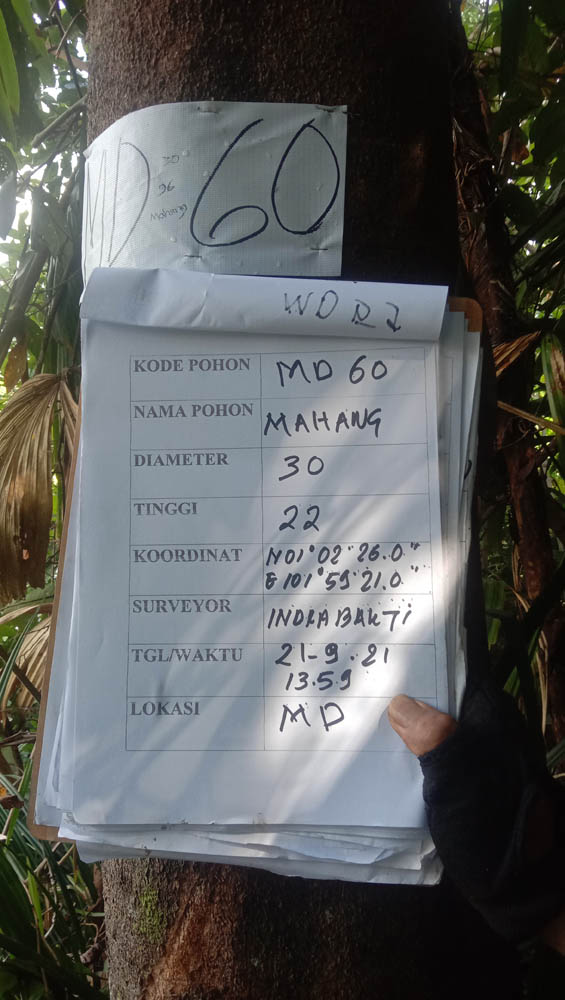 MD 60
30
96
Mahang
KODE POHON MD 60
NAMA POHON MAHANG
DIAMETER 30
TINGGI 22
KOORDINAT N01°02"26.0"
E101°59'21.0"
SURVEYOR INDRA BAKTI
TGL/WAKTU 21-9.21
13.59
LOKASI MD